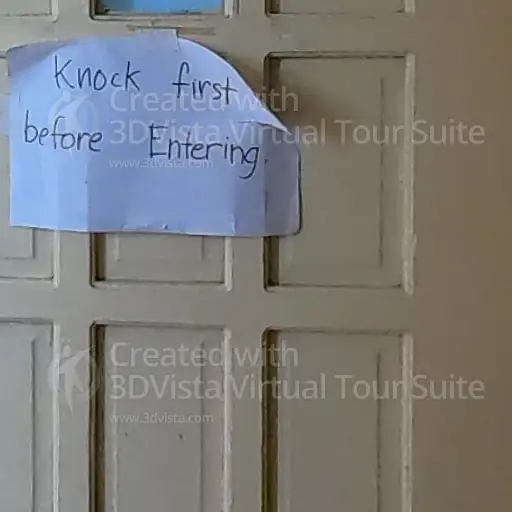 Knock first
before Entering.
Created with
3DVista Virtual Tour Suite
www.3dvista.com
Created with
3DVista Virtual Tour Suite
www.3dvista.com